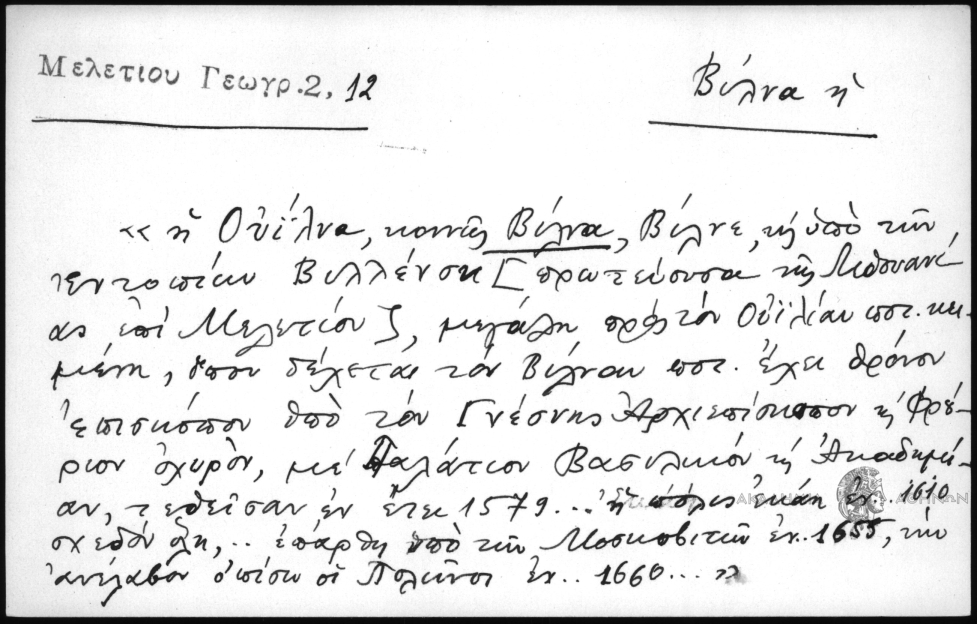 Μελετίου Γεωγρ. 2, 12
Βίλνα ἡ
«ἡ Οὐΐλνα, κοινῶς Βίλνα, Βίλνε, κ̀ ὑπὸ τῶν
ἐντοπίων Βιλλένσκι [πρωτεύουσα τῆς Λιθουανί
ας ἐπὶ Μελετίου], μεγάλη πρὸς τὸν Οὐϊλίαν ποτ. κει-
μένη, ὅπου δέχεται τὸν Βίλναν ποτ. ἔχει θρόνον
ἐπισκόπου ὑπὸ τὸν Γνέσνης Ἀρχιεπίσκοπον κ̀ Φρού-
ριον ὀχυρὸν, μὲ Παλάτιον Βασιλικὸν, κ̀ Ἀκαδημί-
αν, τεθεῖσαν ἐν ἔτει 1579... ἡ πόλις ἐκάη ἐν.. 1610
σχεδὸν ὅλη,.. ἐπάρθη ὑπὸ τῶν Μοσκοβιτῶν ἐν.. 1655, τὴν
ἀνέλαβον ὀπίσω οἱ Πολῶνοι ἐν.. 1660... »